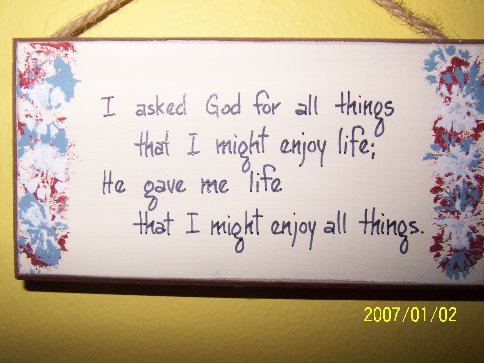 I asked God for all things
that I might enjoy life;
He gave me life
that I might enjoy all things.
2007/01/02